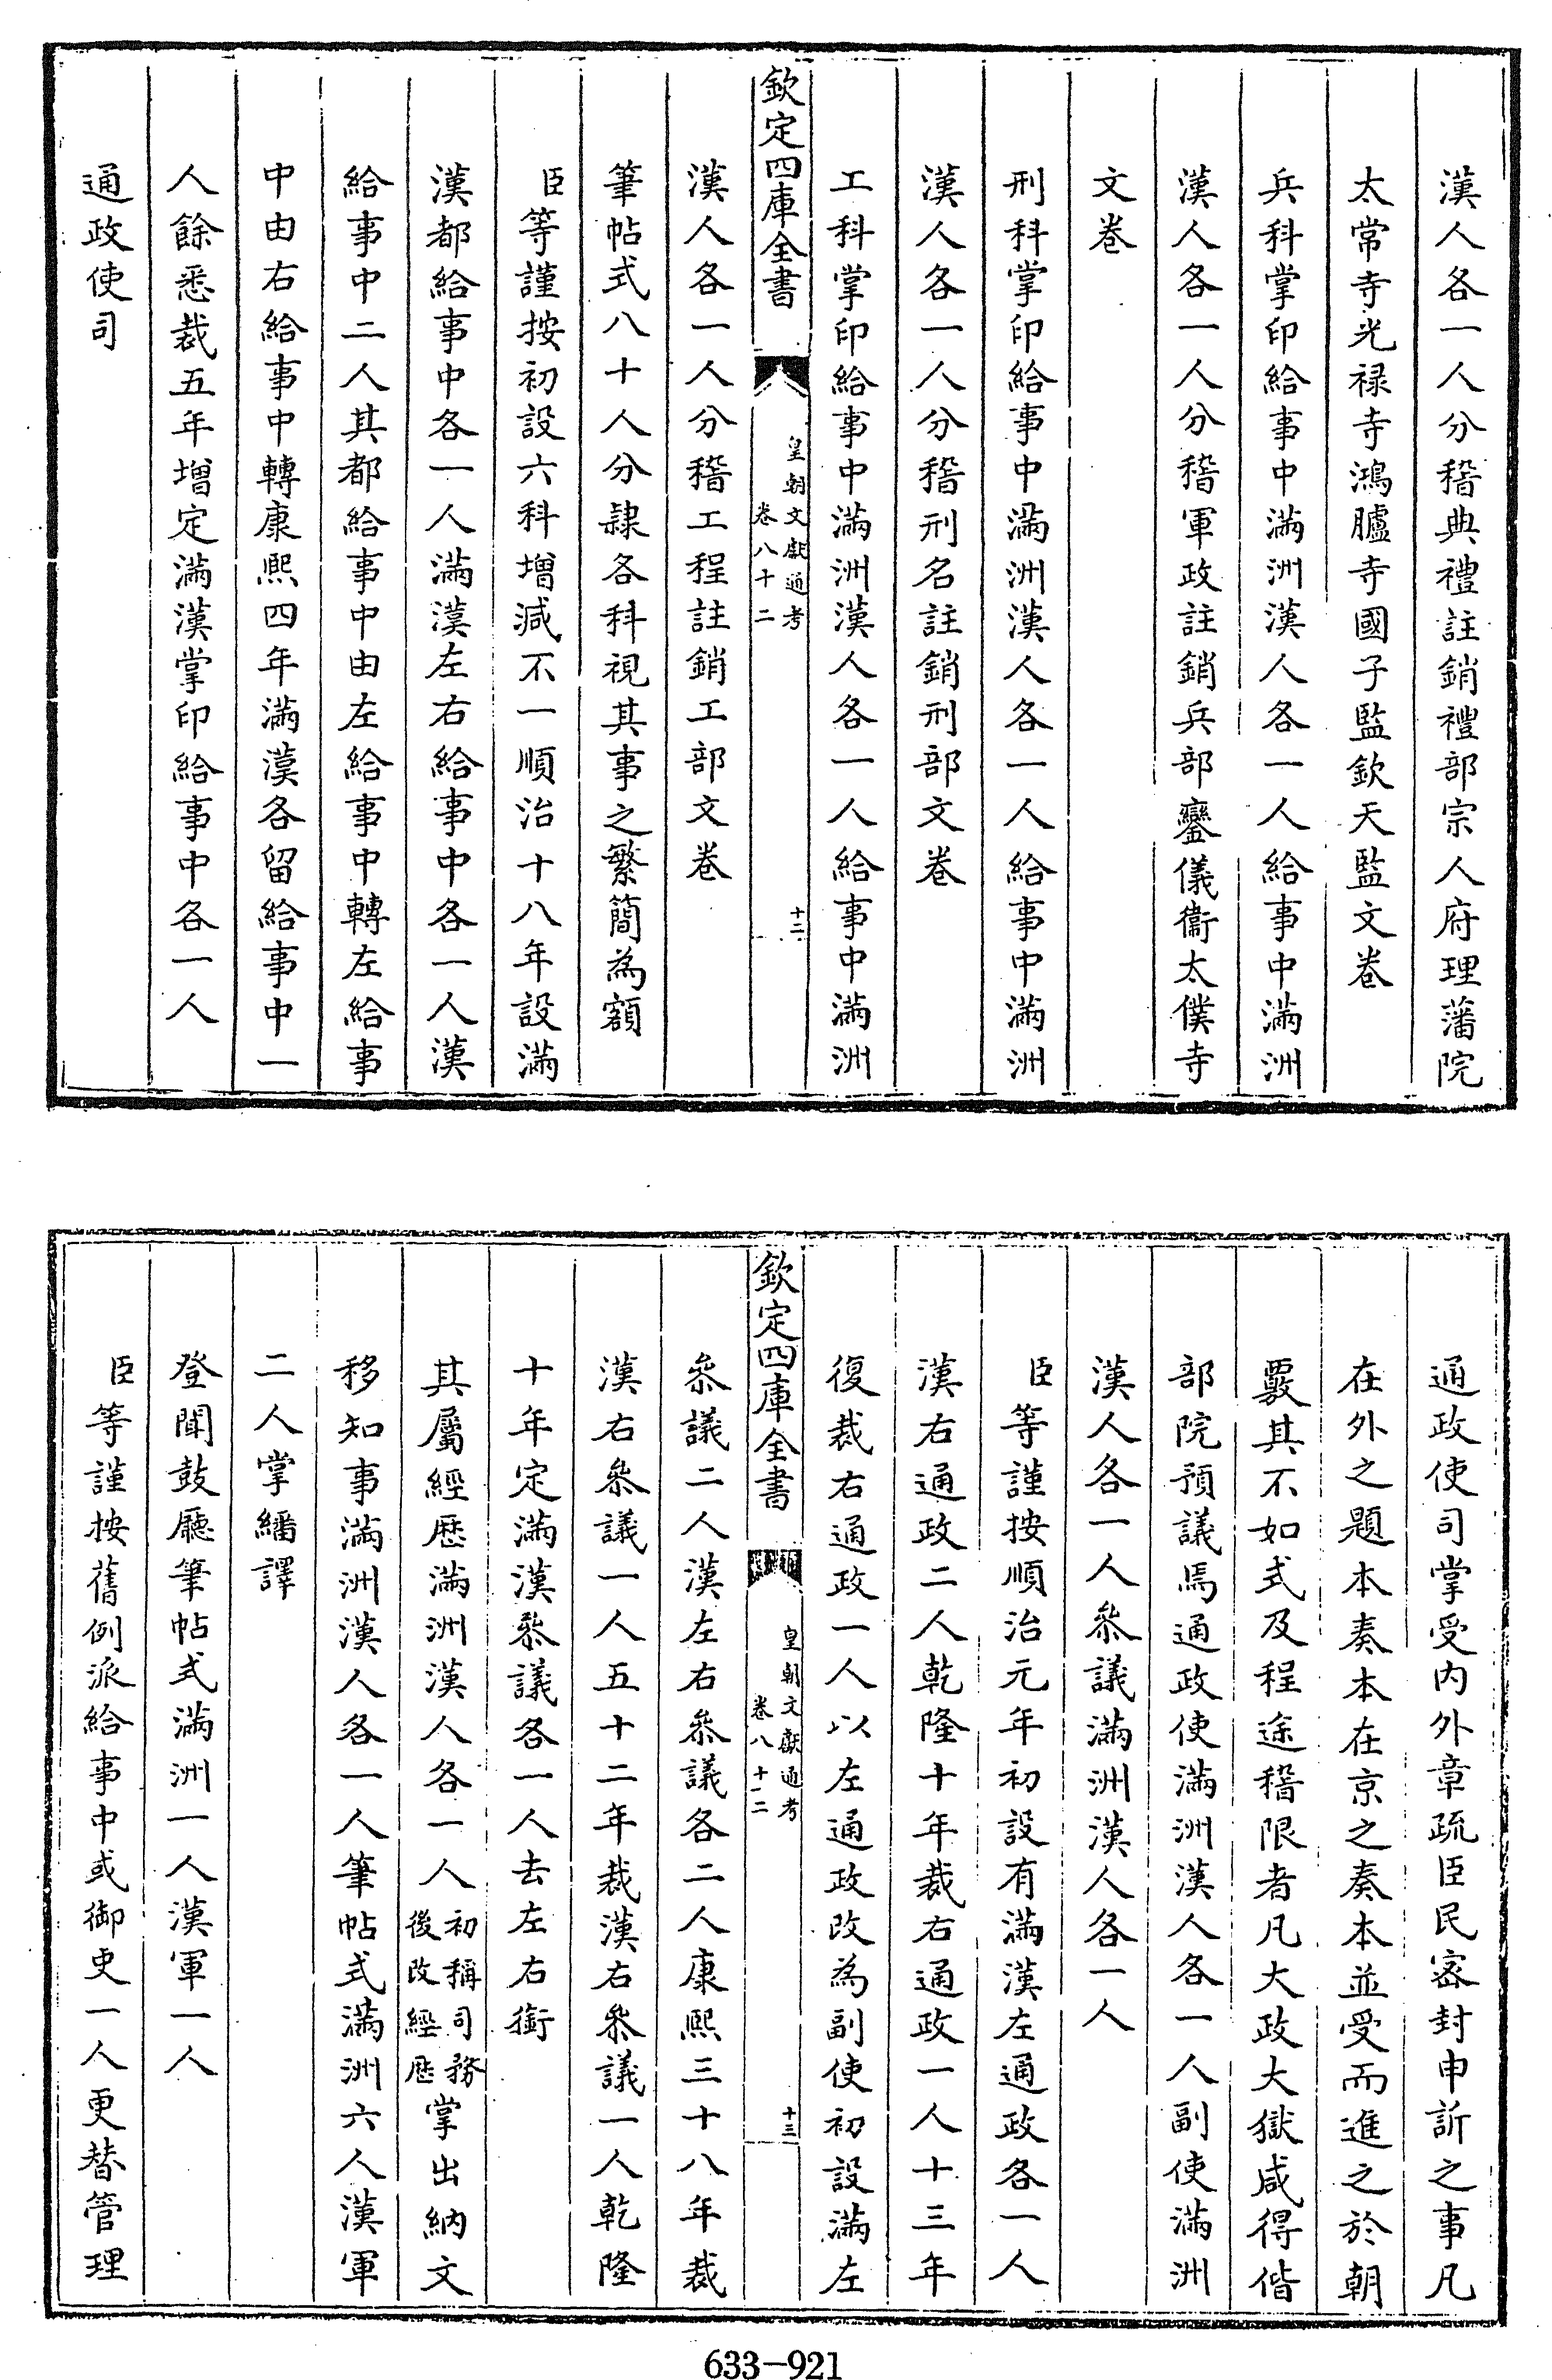 漢人各一人分稽典禮註銷禮部宗人府理藩院
太常寺光禄寺鴻臚寺國子監欽天監文卷
兵科掌印給事中滿洲漢人各一人給事中滿洲
漢人各一人分稽軍政註銷兵部鑾儀衞太僕寺
文卷
刑科掌印給事中滿洲漢人各一人給事中滿洲
漢人各一人分稽刑名註銷刑部文卷
工科掌印給事中滿洲漢人各一人給事中滿洲
欽定四庫全書
皇朝文獻通考
卷八十二
十二
漢人各一人分稽工程註銷工部文卷
筆帖式八十人分隷各科視其事之繁簡為額
臣等謹按初設六科增減不一順治十八年設滿
漢都給事中各一人滿漢左右給事中各一人漢
給事中二人其都給事中由左給事中轉左給事
中由右給事中轉康熙四年滿漢各留給事中一
人餘悉裁五年增定滿漢掌印給事中各一人
通政使司
通政使司掌受内外章疏臣民密封申訴之事凡
在外之題本奏本在京之奏本並受而進之於朝
覈其不如式及程途稽限者凡大政大獄咸得偕
部院預議焉通政使滿洲漢人各一人副使滿洲
漢人各一人叅議滿洲漢人各一人
臣等謹按順治元年初設有滿漢左通政各一人
漢右通政二人乾隆十年裁右通政一人十三年
復裁右通政一人以左通政改為副使初設滿左
欽定四庫全書
皇朝文獻通考
卷八十二
十三
叅議二人漢左右叅議各二人康熙三十八年裁
漢右叅議一人五十二年裁漢右叅議一人乾隆
十年定滿漢叅議各一人去左右銜
其屬經歴滿洲漢人各一人初稱司務後改經歴掌出納文
移知事滿洲漢人各一人筆帖式滿洲六人漢軍
二人掌繙譯
登聞鼓廳筆帖式滿洲一人漢軍一人
臣等謹按舊例派給事中或御史一人更替管理
633-921